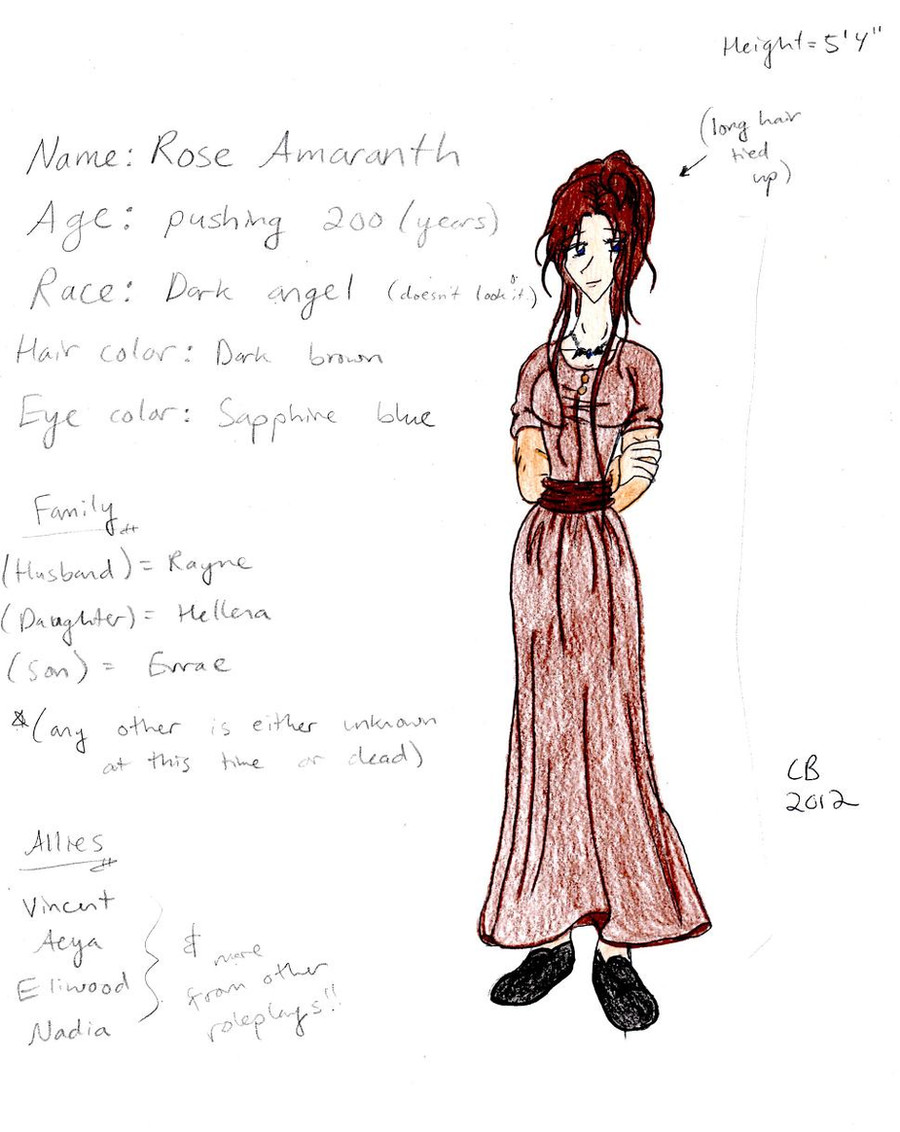 Height = 5'4"
(long hair
tied
up)
Name: Rose Amaranth
Age: pushing 200 (years)
Race: Dark angel (doesn't look it.)
Hair color: Dark brown
Eye color: Sapphire blue
Family
(Husband) = Rayne
(Daughter) = Hellena
(Son) = Errae
*(any other is either unknown
at this time or dead)
CB
2012
Allies
Vincent
Aeya
Eliwood
Nadia
& more
from other
roleplays!!